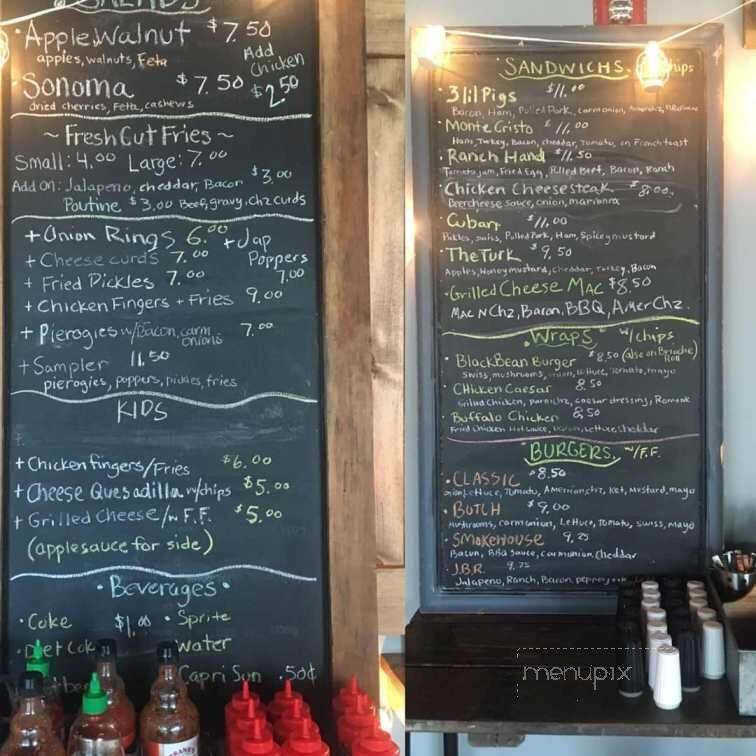 SALADS
• Apple Walnut $7.50
apples, walnuts, Feta
Add
Chicken
$2.50
• Sonoma $7.50
dried cherries, Feta, cashews
~ Fresh Cut Fries ~
Small: 4.00 Large: 7.00
Add on: Jalapeno, cheddar, Bacon $3.00
Poutine $3.00 Beef, gravy, chz curds
+ Onion Rings 6.00
+ Jap
Poppers
7.00
+ Cheese curds 7.00
+ Fried Pickles 7.00
+ Chicken Fingers + Fries 9.00
+ Pierogies w/Bacon, carm onions 7.00
+ Sampler 11.50
pierogies, poppers, pickles, fries
KIDS
+ Chicken fingers/Fries $6.00
+ Cheese Quesadilla w/chips $5.00
+ Grilled Cheese/w F.F. $5.00
(applesauce for side)
• Beverages •
• Coke $1.00 • Sprite
• Diet Coke water
Capri Sun .50¢
SANDWICHS. chips
• 3 lil Pigs $11.00
Bacon, Ham, Pulled Pork, carm onion,
• Monte Cristo $11.00
Ham, Turkey, Bacon, cheddar, Tomato, on French toast
• Ranch Hand $11.50
Tomato jam, Fried Egg, Pulled Beef, Bacon, Ranch
• Chicken Cheesesteak $8.00
Beer cheese sauce, onion, marinara
• Cuban $11.00
Pickles, swiss, Pulled Pork, Ham, Spicy mustard
• The Turk $9.50
Apples, Honey mustard, cheddar, Turkey, Bacon
• Grilled Cheese Mac $8.50
Mac N Chz, Bacon, BBQ, Amer Chz.
• Wraps • w/chips
(also on Brioche
Roll)
• BlackBean Burger $8.50
Swiss, mushrooms, onion, lettuce, tomato, mayo
• CHicken Caesar 8.50
Grilled chicken, parm chz, caesar dressing, Romaine
• Buffalo Chicken 8.50
Fried chicken Hot sauce, Bacon, Lettuce cheddar
• BURGERS. w/F.F.
• CLASSIC $8.50
onion Lettuce, Tomato, American chz, Ket, Mustard, mayo
• BUTCH $9.00
Mushrooms, carm onion, Lettuce, Tomato, swiss, mayo
• SMOKEHOUSE 9.25
Bacon, BBQ sauce, carm onion, cheddar
• J.B.R. 9.25
Jalapeno, Ranch, Bacon,
menupix